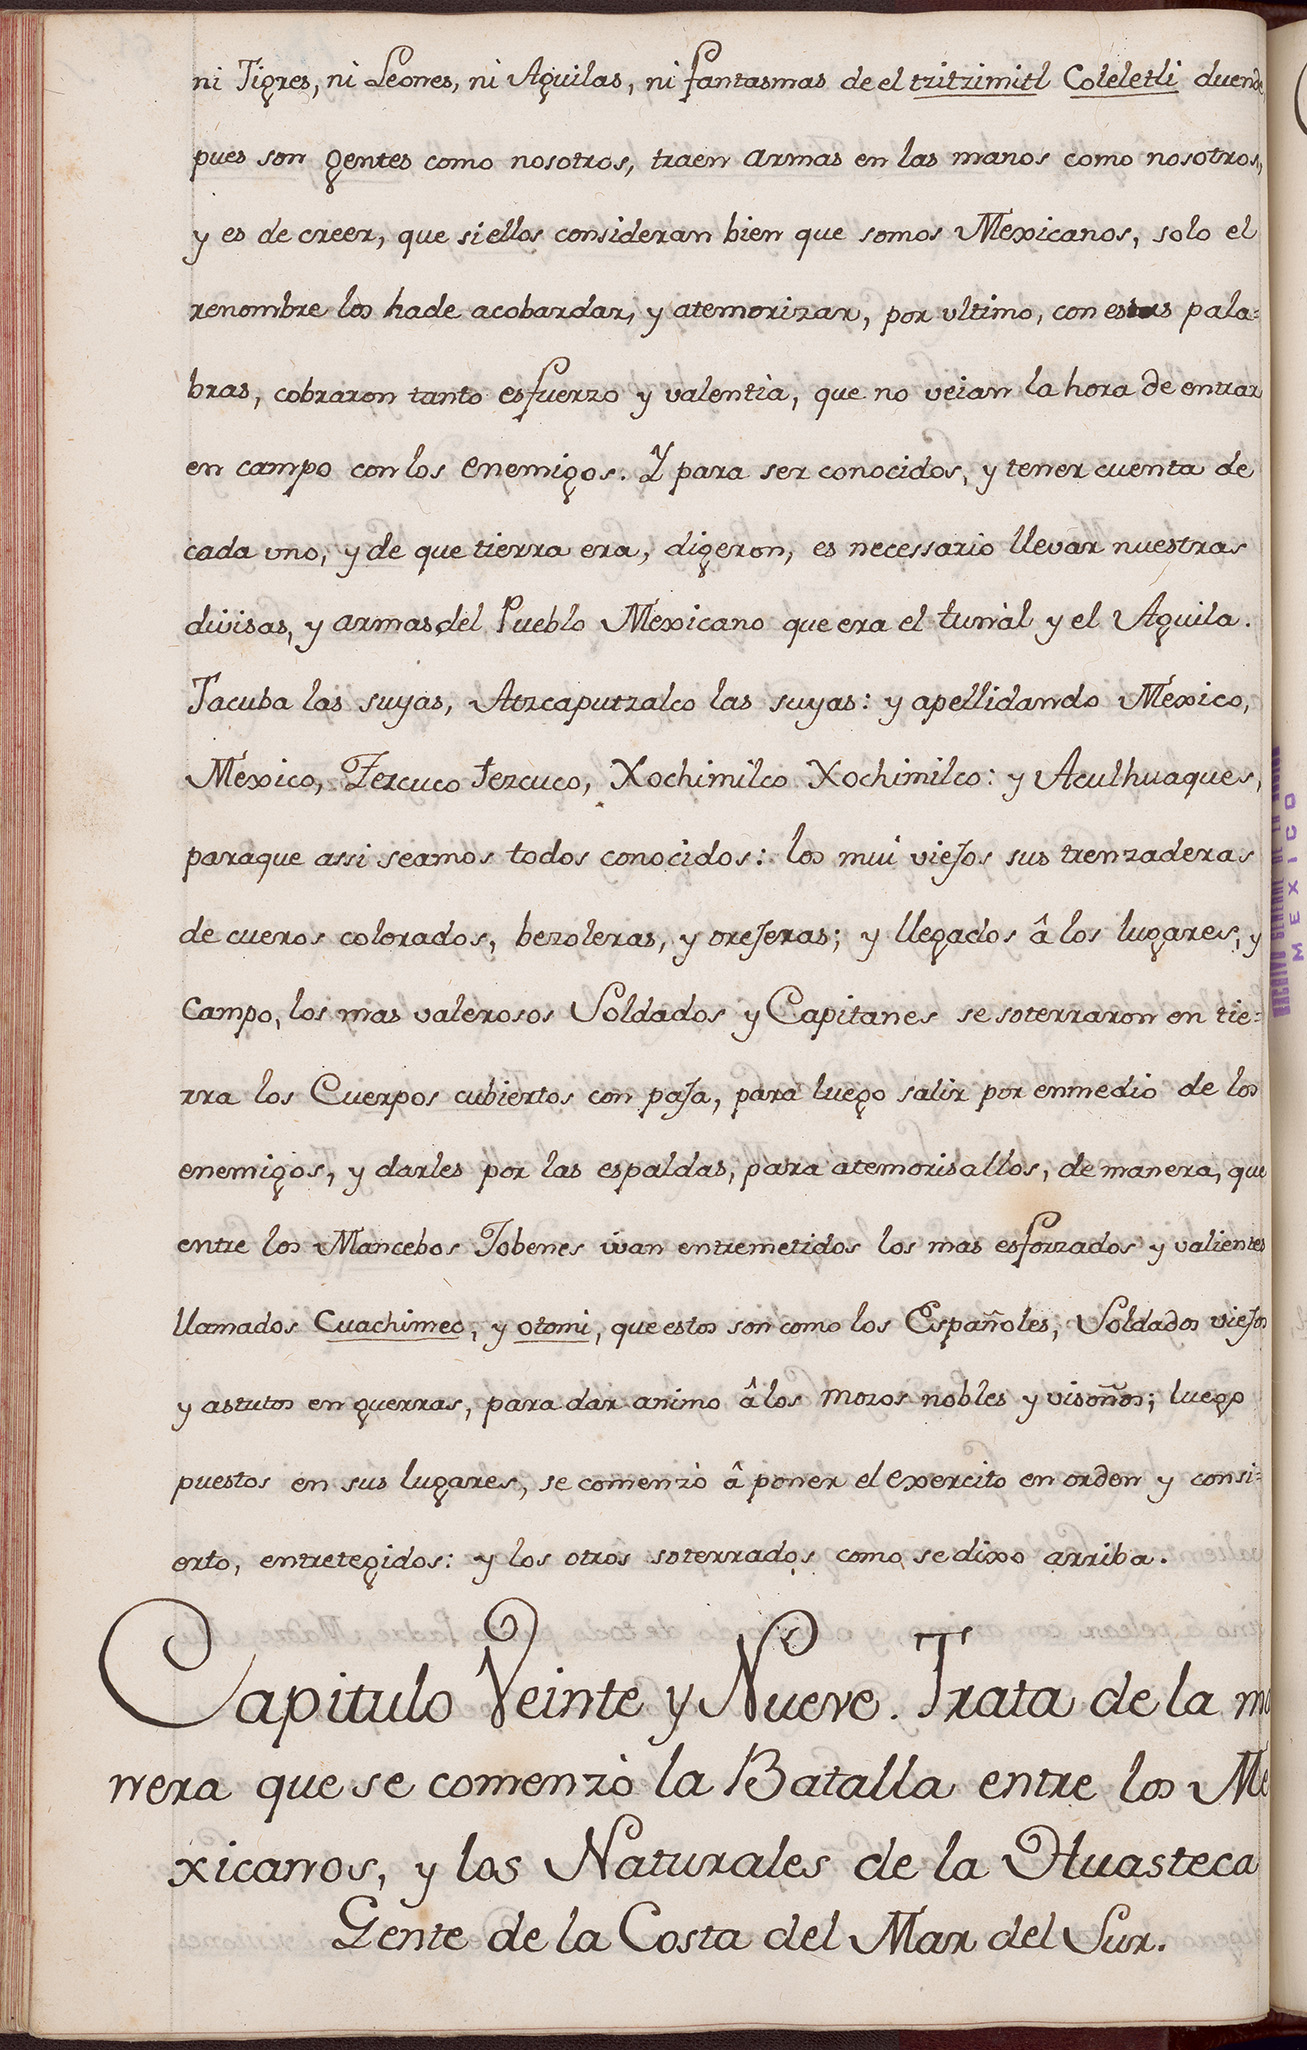 ni Tigres, ni Leones, ni Aguilas, ni fantasmas de el tzitzimitl Coleletli duende,
pues son gentes como nosotros, traen armas en las manos como nosotros,
y es de creer, que si ellos consideran bien que somos Mexicanos, solo el
renombre los hade acobardar, y atemorizar, por ultimo, con estas pala=
bras, cobraron tanto esfuerzo y valentìa, que no veian la hora de entrar
en campo con los enemigos. Y para ser conocidos, y tener cuenta de
cada uno, y de que tierra era, digeron, es necessario llevar nuestras
divisas, y armas del Pueblo Mexicano que era el tunàl y el Aguila.
Tacuba las suyas, Atzcaputzalco las suyas: y apellidando Mèxico,
Mèxico, Tezcuco tezcuco, Xochimilco Xochimilco: y Aculhuaques,
paraque assi seamos todos conocidos: los mui viejos sus trenzaderas
de cueros colorados, bezoleras, y orejeras; y llegados â los lugares, y
campo, los mas valerosos Soldados y Capitanes se soterraron en tie=
rra los Cuerpos cubiertos con paja, para luego salir por enmedio de los
enemigos, y darles por las espaldas, para atemorisallos, de manera, que
entre los Mancebos Jobenes ivan entremetidos los mas esforzados y valientes
llamados Cuachimec, y otomi, que estos son como los Españoles, Soldados viejos
y astutos en guerras, para dar animo â los mozos nobles y visoños; luego
puestos en sus lugares, se comenzò â poner el exercito en orden y consi=
erto, entretegidos: y los otros soterrados como se dixo arriba.
Capitulo Veinte y Nueve. Trata de la ma
nera que se comenzò la Batalla entre los Me
xicanos, y los Naturales de la Huasteca
Gente de la Costa del Mar del Sur.
ARCHIVO GENERAL DE LA NACION
MEXICO